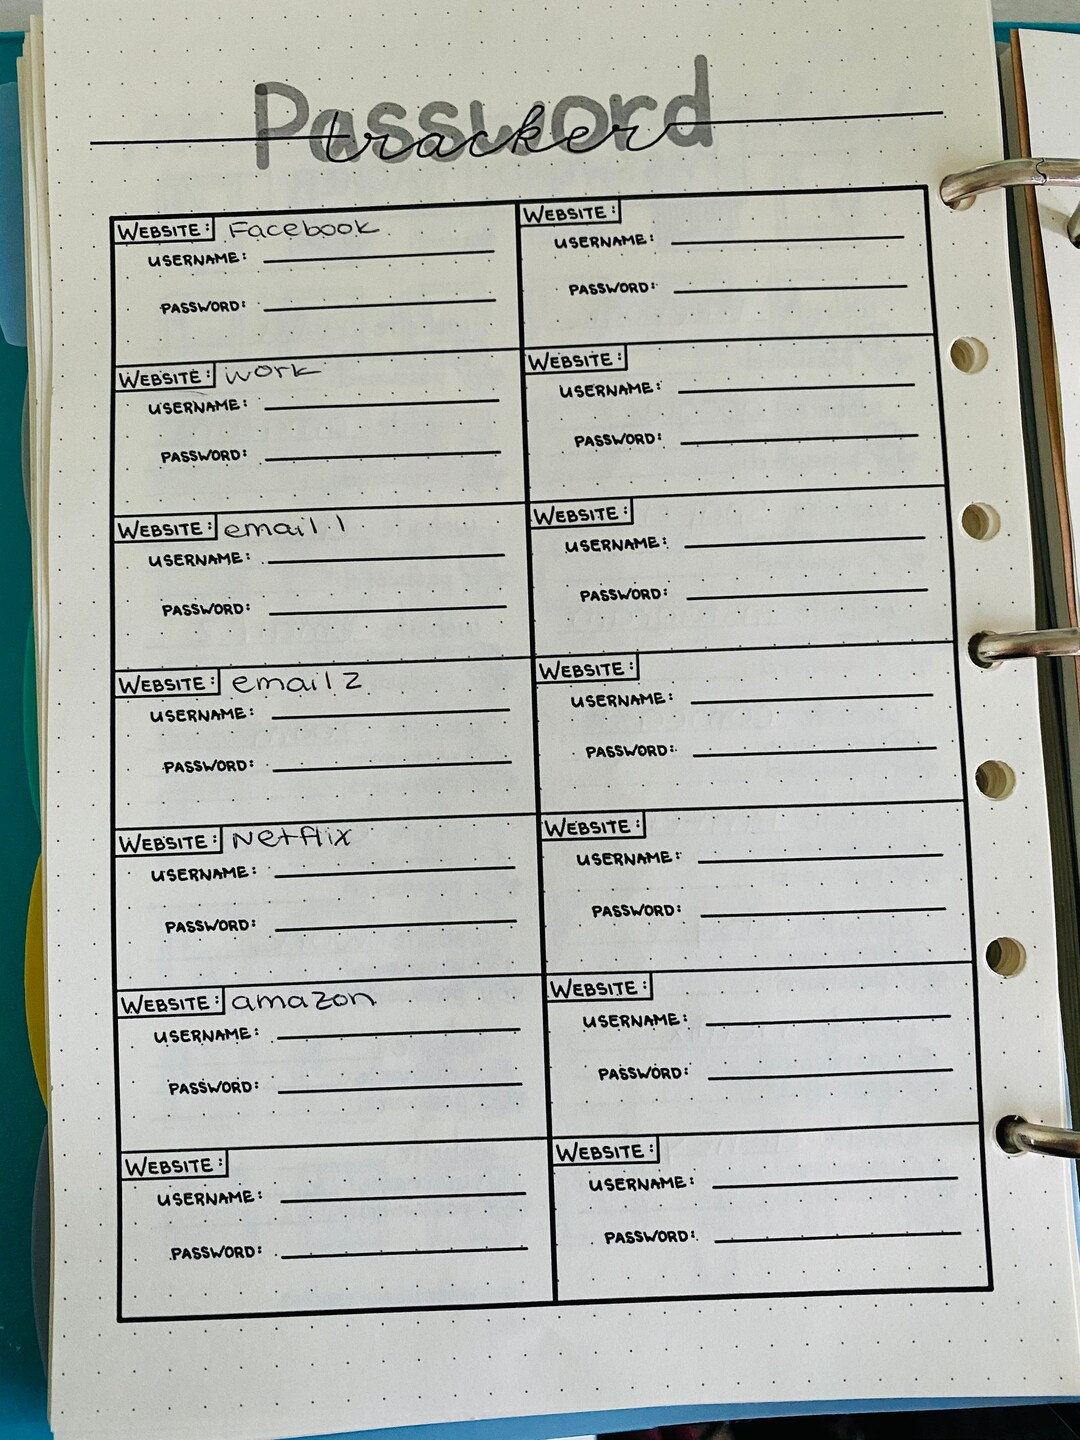 Password
tracker
WEBSITE: Facebook
USERNAME:
PASSWORD:
WEBSITE: work
USERNAME:
PASSWORD:
WEBSITE: email 1
USERNAME:
PASSWORD:
WEBSITE: email 2
USERNAME:
PASSWORD:
WEBSITE: Netflix
USERNAME:
PASSWORD:
WEBSITE: amazon
USERNAME:
PASSWORD:
WEBSITE:
USERNAME:
PASSWORD:
WEBSITE:
USERNAME:
PASSWORD:
WEBSITE:
USERNAME:
PASSWORD:
WEBSITE:
USERNAME:
PASSWORD:
WEBSITE:
USERNAME:
PASSWORD:
WEBSITE:
USERNAME:
PASSWORD:
WEBSITE:
USERNAME:
PASSWORD:
WEBSITE:
USERNAME:
PASSWORD: